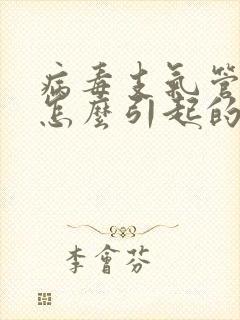 病毒支氣管
怎麼引起的
李會芬